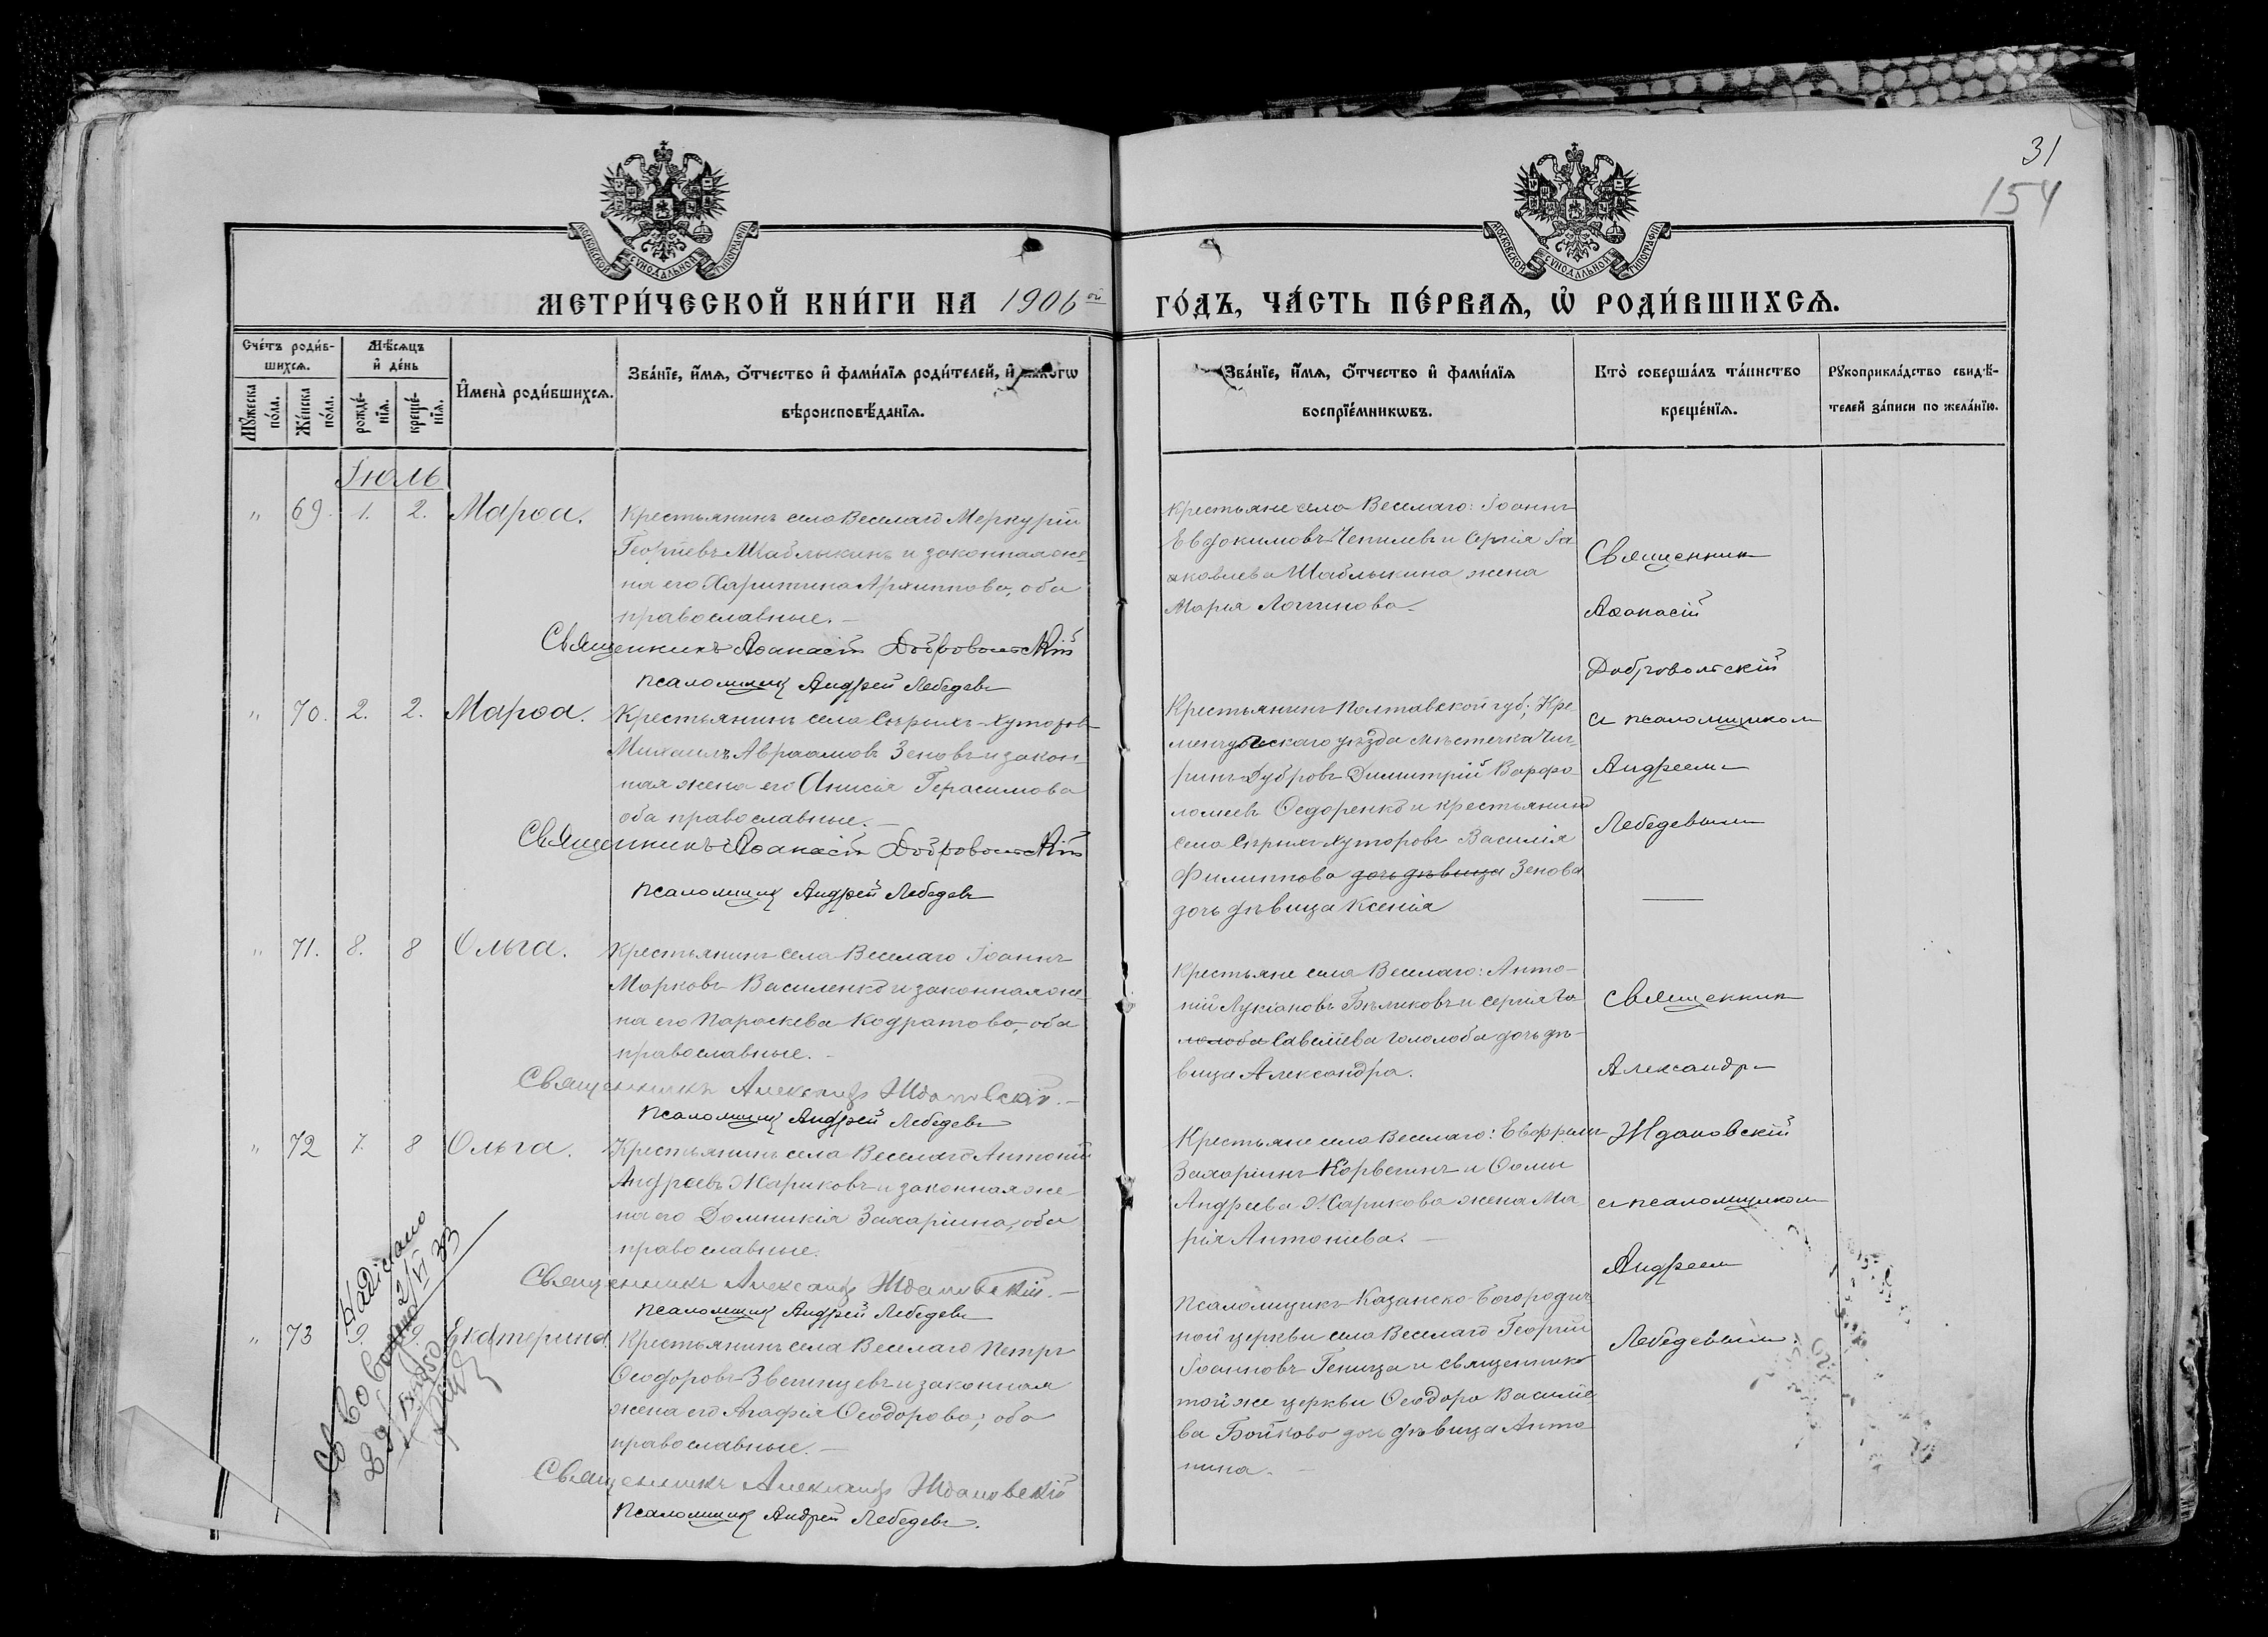 31
154
МОСКОВСКОЙ СѴНОДАЛЬНОЙ ТИПОГРАФІИ
МОСКОВСКОЙ СѴНОДАЛЬНОЙ ТИПОГРАФІИ
МЕТРИ́ЧЕСКОЙ КНИ́ГИ НА 1906 ой ГО́ДЪ, ЧА́СТЬ ПЕ́РВАѦ, Ѿ РОДИ́ВШИХСѦ.
Сче́тъ роди́в-
шихсѧ.
Мѣ́сѧцъ
и҆ де́нь
Мꙋ́жеска
по́ла.
Же́нска
по́ла.
рожде́-
нїѧ.
креще́-
нїѧ.
И҆мена̀ роди́вшихсѧ.
Зва́нїе, и҆́мѧ, ѻ҆́тчество и҆ фами́лїѧ роди́телей, и҆
вѣроисповѣ́данїѧ.
Зва́нїе, и҆́мѧ, ѻ҆́тчество и҆ фами́лїѧ
воспрїе́мникѡвъ.
Кто̀ соверша́лъ та́инство
креще́нїѧ.
Рꙋкоприкла́дство свидѣ́-
телей за́писи по жела́нїю.
Іюль
" 69. 1. 2. Марѳа.
Крестьянинъ села Веселаго Меркурій
Георгіевъ Шаблыкинъ и законная же-
на его Харитина Архиппова, оба
православные.
Священникъ Аѳанасій Добровольскій
Псаломщик Андрей Лебедевъ
Крестьяне села Веселаго: Іоаннъ
Евдокимовъ Чепилевъ и Сергія Іа
аковлева Шаблыкина жена
Марія Логгинова.
Священник
Аѳанасій
Добровольскій
съ псаломщиком
Андреемъ
Лебедевымъ
" 70. 2. 2. Марѳа.
Крестьянинъ села Сѣрыхъ-Хуторовъ
Михаилъ Авраамовъ Зеновъ и закон
ная жена его Анисія Герасимова
оба православные.
Священникъ Аѳанасій Добровольскій
Псаломщик Андрей Лебедевъ
Крестьянинъ Полтавской губ; Кре
менчугскаго уѣзда мѣстечка Чиг
ринъ-Дубровъ Димитрій Варфо-
ломеевъ Ѳедоренко и крестьянина
села Сѣрыхъ-Хуторовъ Василія
Филиппова дочь дѣвица Зенова
дочь дѣвица Ксенія
" 71. 8. 8 Ольга.
Крестьянинъ села Веселаго Іоаннъ
Марковъ Василенко и законная же-
на его Параскева Кодратова, оба
православные.
Священникъ Александръ Ждановскій.
Псаломщик Андрей Лебедевъ
Крестьяне села Веселаго: Анто-
ній Лукіановъ Бѣликовъ и Сергія Го
лолоба Савеліева Гололоба дочь дѣ-
вица Александра.
Священник
Александръ
Ждановскій
съ псаломщиком
Андреем
Лебедевымъ
" 72 7. 8 Ольга.
Крестьянинъ села Веселаго Антоній
Андреевъ Жариковъ и законная же-
на его Домникія Захаріина, оба
православные.
Священникъ Александръ Ждановскій.
Псаломщик Андрей Лебедевъ
Крестьяне села Веселаго: Евфреми
Захаріинъ Корвегинъ и Ѳомы
Андреева Жарикова жена Ма
рія Антониева.
" 73 9. 9. Екатерина.
Крестьянинъ села Веселаго Петръ
Ѳеодоровъ Звегинцевъ и законная
жена его Агафія Ѳеодорова; оба
православные.
Священникъ Александръ Ждановскій
Псаломщик Андрей Лебедевъ.
Псаломщикъ Казанско-Богородич
ной церкви села Веселаго Георгій
Іоанновъ Геница и священника
той же церкви Ѳеодора Василіе
ва Бойкова дочь дѣвица Анто
нина.
Надіслано
2/VI 33